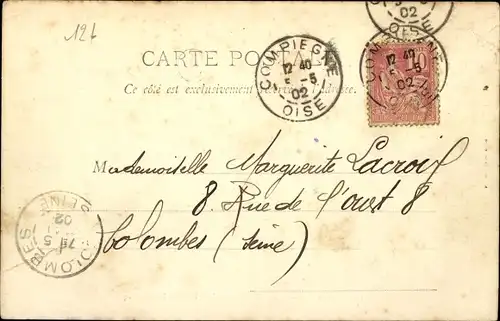 126
CARTE POSTALE
Ce côté est exclusivement réservé à l'adresse.
COMPIEGNE
12 40
5 -5
02
OISE
COMPIEGNE
12 40
5 -5
02
OISE
02
OISE
10
Mademoiselle Marguerite Lacroix
8 Rue de l'ouest 8
Colombes (Seine)
COLOMBES
7E
5
02
SEINE